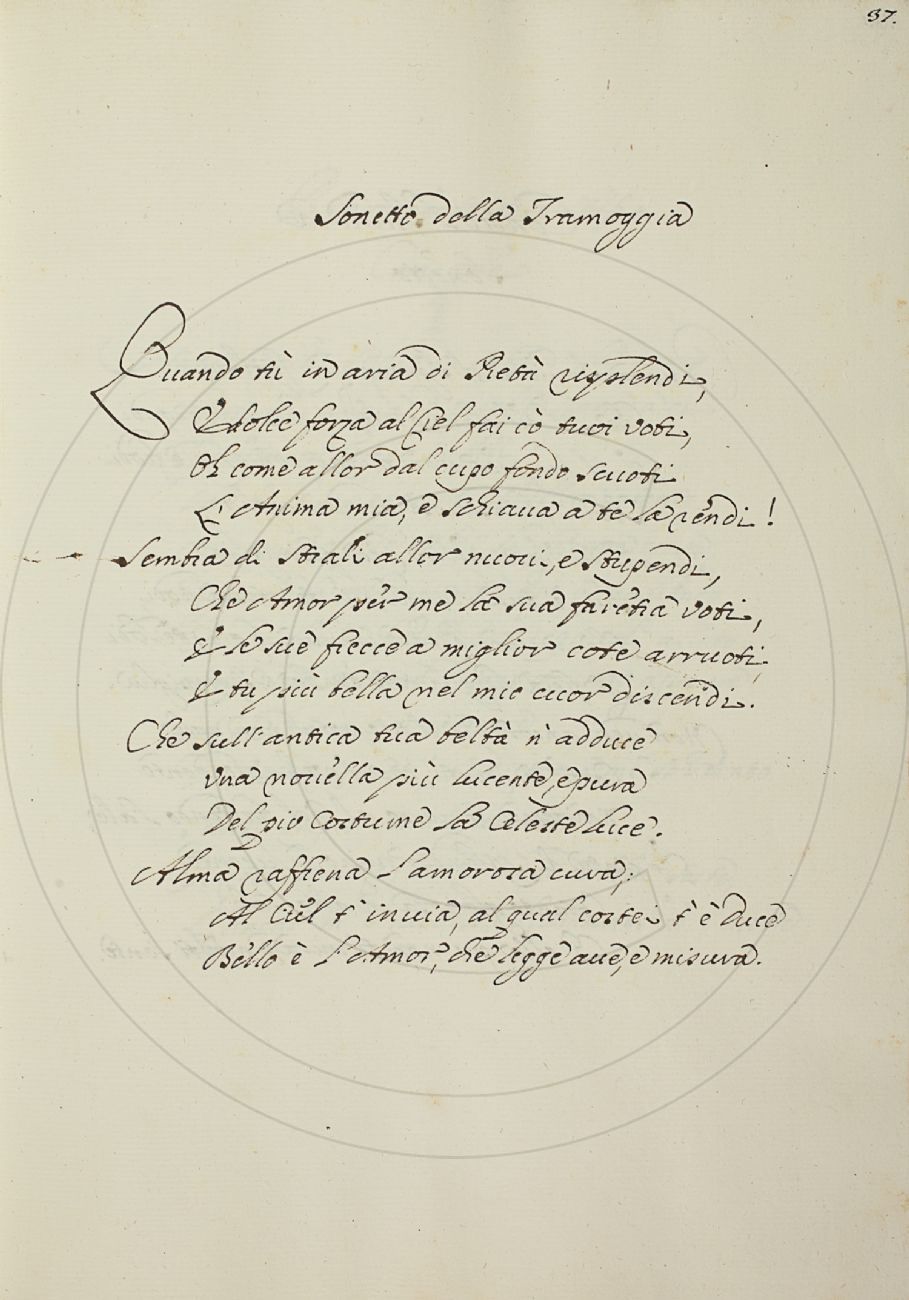 37.
Sonetto della Tramoggia
Quando tù in aria di Pietà risplendi,
E dolce forza al Ciel fai cò tuoi voti,
Oh come allor dal cupo fondo scuoti
L'Anima mia, e schiava a te la rendi!
Sembra di strali allor nuovi, e stupendi,
Che Amor per me la sua faretra voti,
E le sue frecce a miglior cote arruoti,
E tu più bella nel mio cuor discendi.
Che sull'antica tua beltà n'adduce
Una novella più lucente, e pura
Del pio Costume la Celeste luce.
Alma raffrena l'amorosa cura;
Al Ciel t'invia, al qual costei t'è Duce
Bello è l'Amor, che legge ave, e misura.